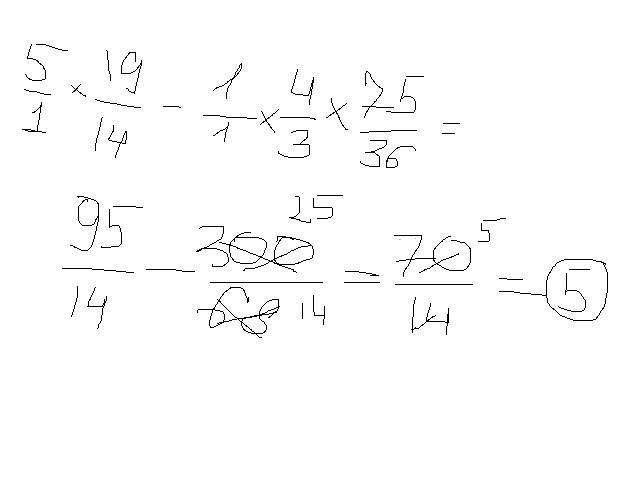 5/1 × 19/14 - 1/1 × 4/3 × 75/36 =
95/14 - 300 25/ 14 = 70 5/14 = 5